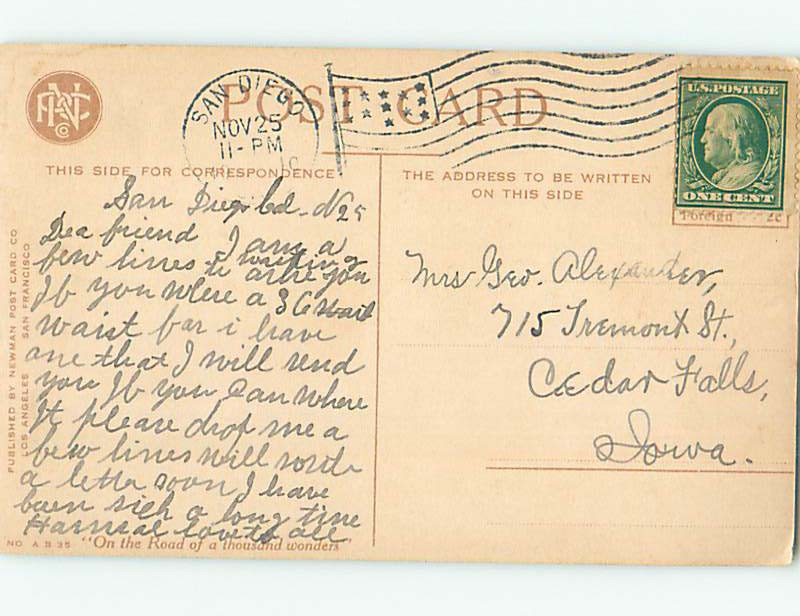 POST CARD
SAN DIEGO
NOV 25
11-PM
U.S. POSTAGE
ONE CENT
Foreign 2c
THIS SIDE FOR CORRESPONDENCE
THE ADDRESS TO BE WRITTEN
ON THIS SIDE
San Diego Cal. N 25
Dea friend I am a
few lines writing
to aske you
If you Where a 36
waist for i have
one that I will send
you If you Can Where
It please drop me a
few lines will
a letter soon I have
been sick a long time
love to all
Mrs Geo. Alexander,
715 Tremont St.,
Cedar Falls,
Iowa.
PUBLISHED BY NEWMAN POST CARD CO
LOS ANGELES SAN FRANCISCO
NO. A. B 35 "On the Road of a thousand wonders"